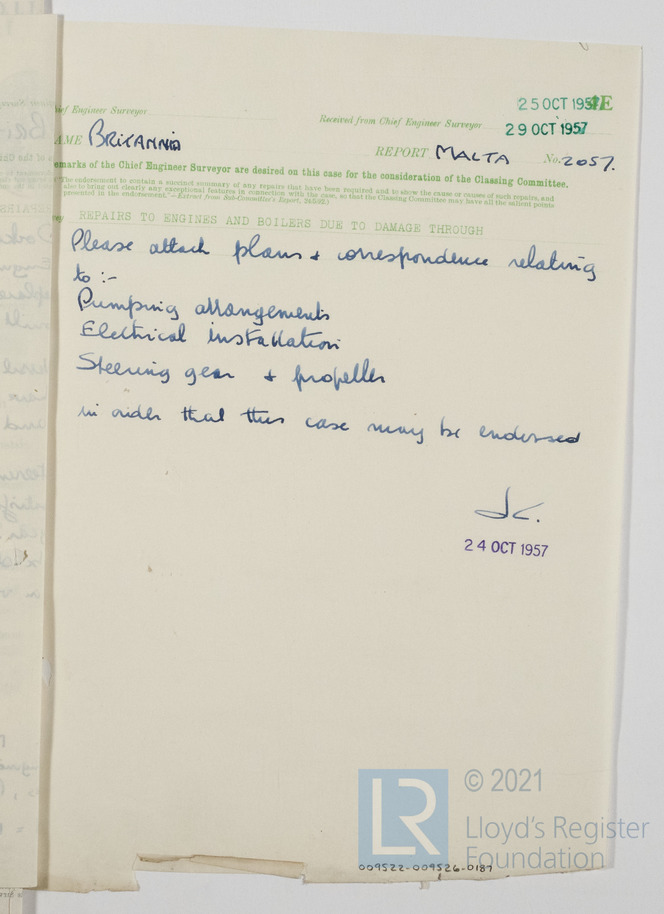 ief Engineer Surveyor
25 OCT 1957 E
Received from Chief Engineer Surveyor
29 OCT 1957
AME BRITANNIA
REPORT MALTA No. 2057.
emarks of the Chief Engineer Surveyor are desired on this case for the consideration of the Classing Committee.
"The endorsement to contain a succinct summary of any repairs that have been required and to show the cause or causes of such repairs, and
also to bring out clearly any exceptional features in connection with the case, so that the Classing Committee may have all the salient points
presented in the endorsement."—Extract from Sub-Committee's Report,
REPAIRS TO ENGINES AND BOILERS DUE TO DAMAGE THROUGH
Please attach plans & correspondence relating
to :-
Pumping arrangements
Electrical installation
Steering gear & propeller
in order that this case may be endorsed
24 OCT 1957
LR
© 2021
Lloyd's Register
Foundation
009522-009526-0187